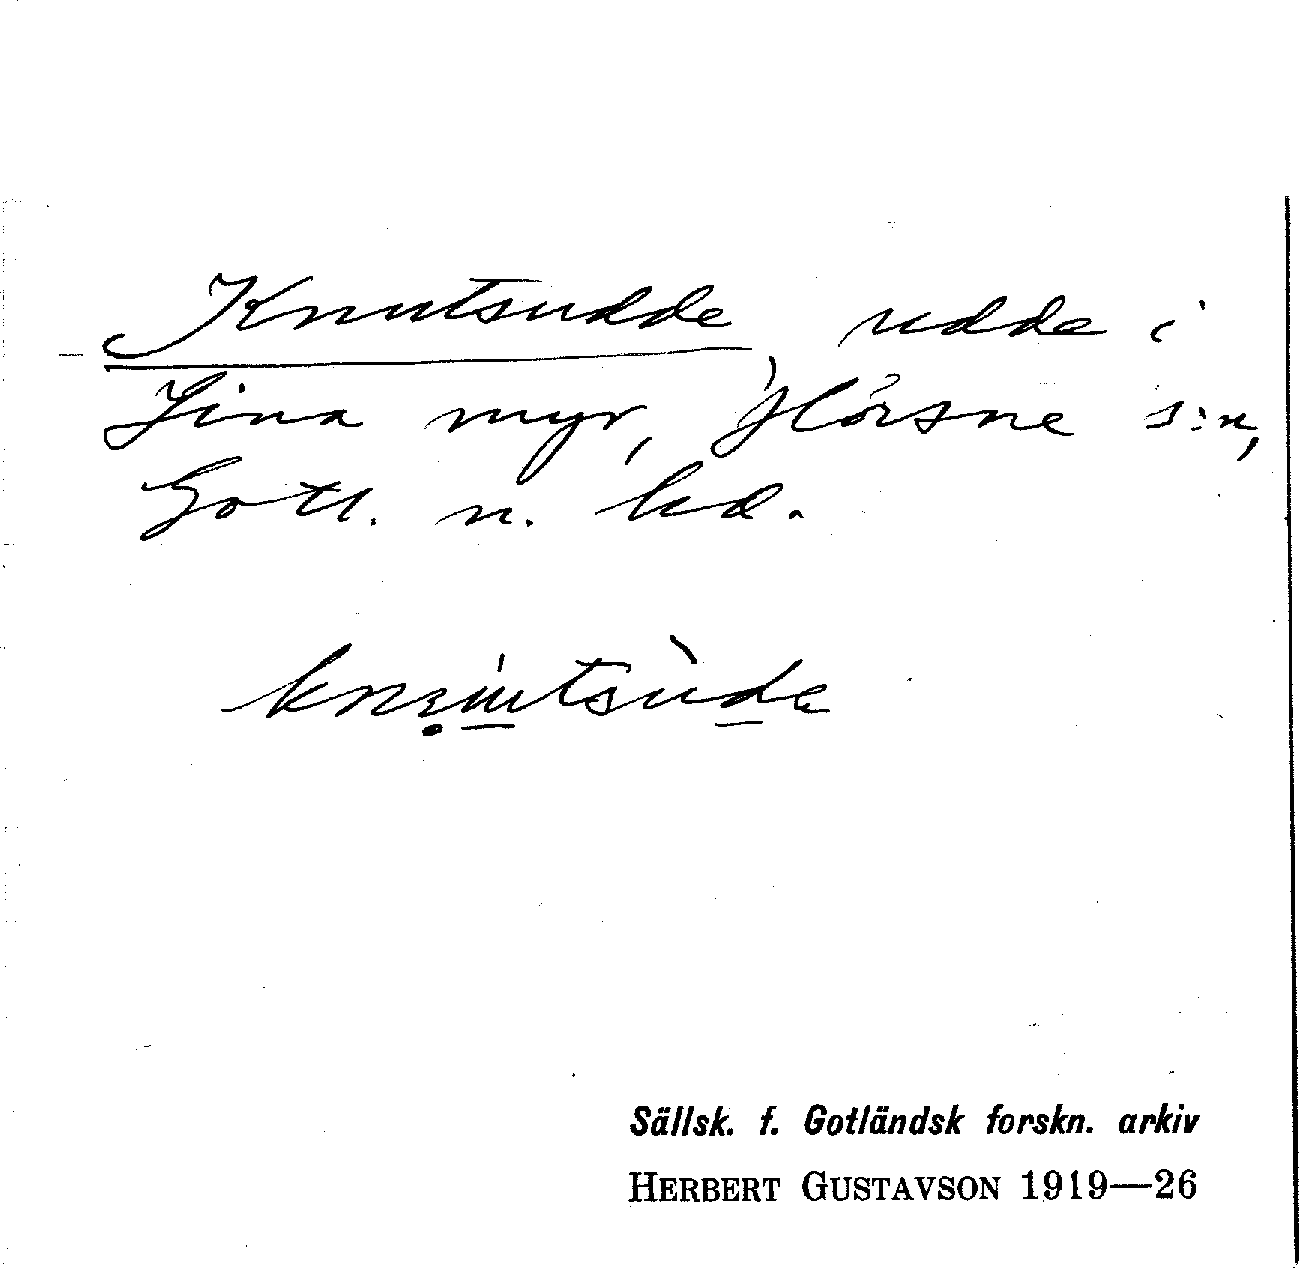 Knutsudde, udde i
Lina myr, Hörsne s:n,
Gotl. n. hd.
Sällsk. f. Gotländsk forskn. arkiv
HERBERT GUSTAVSON 1919—26